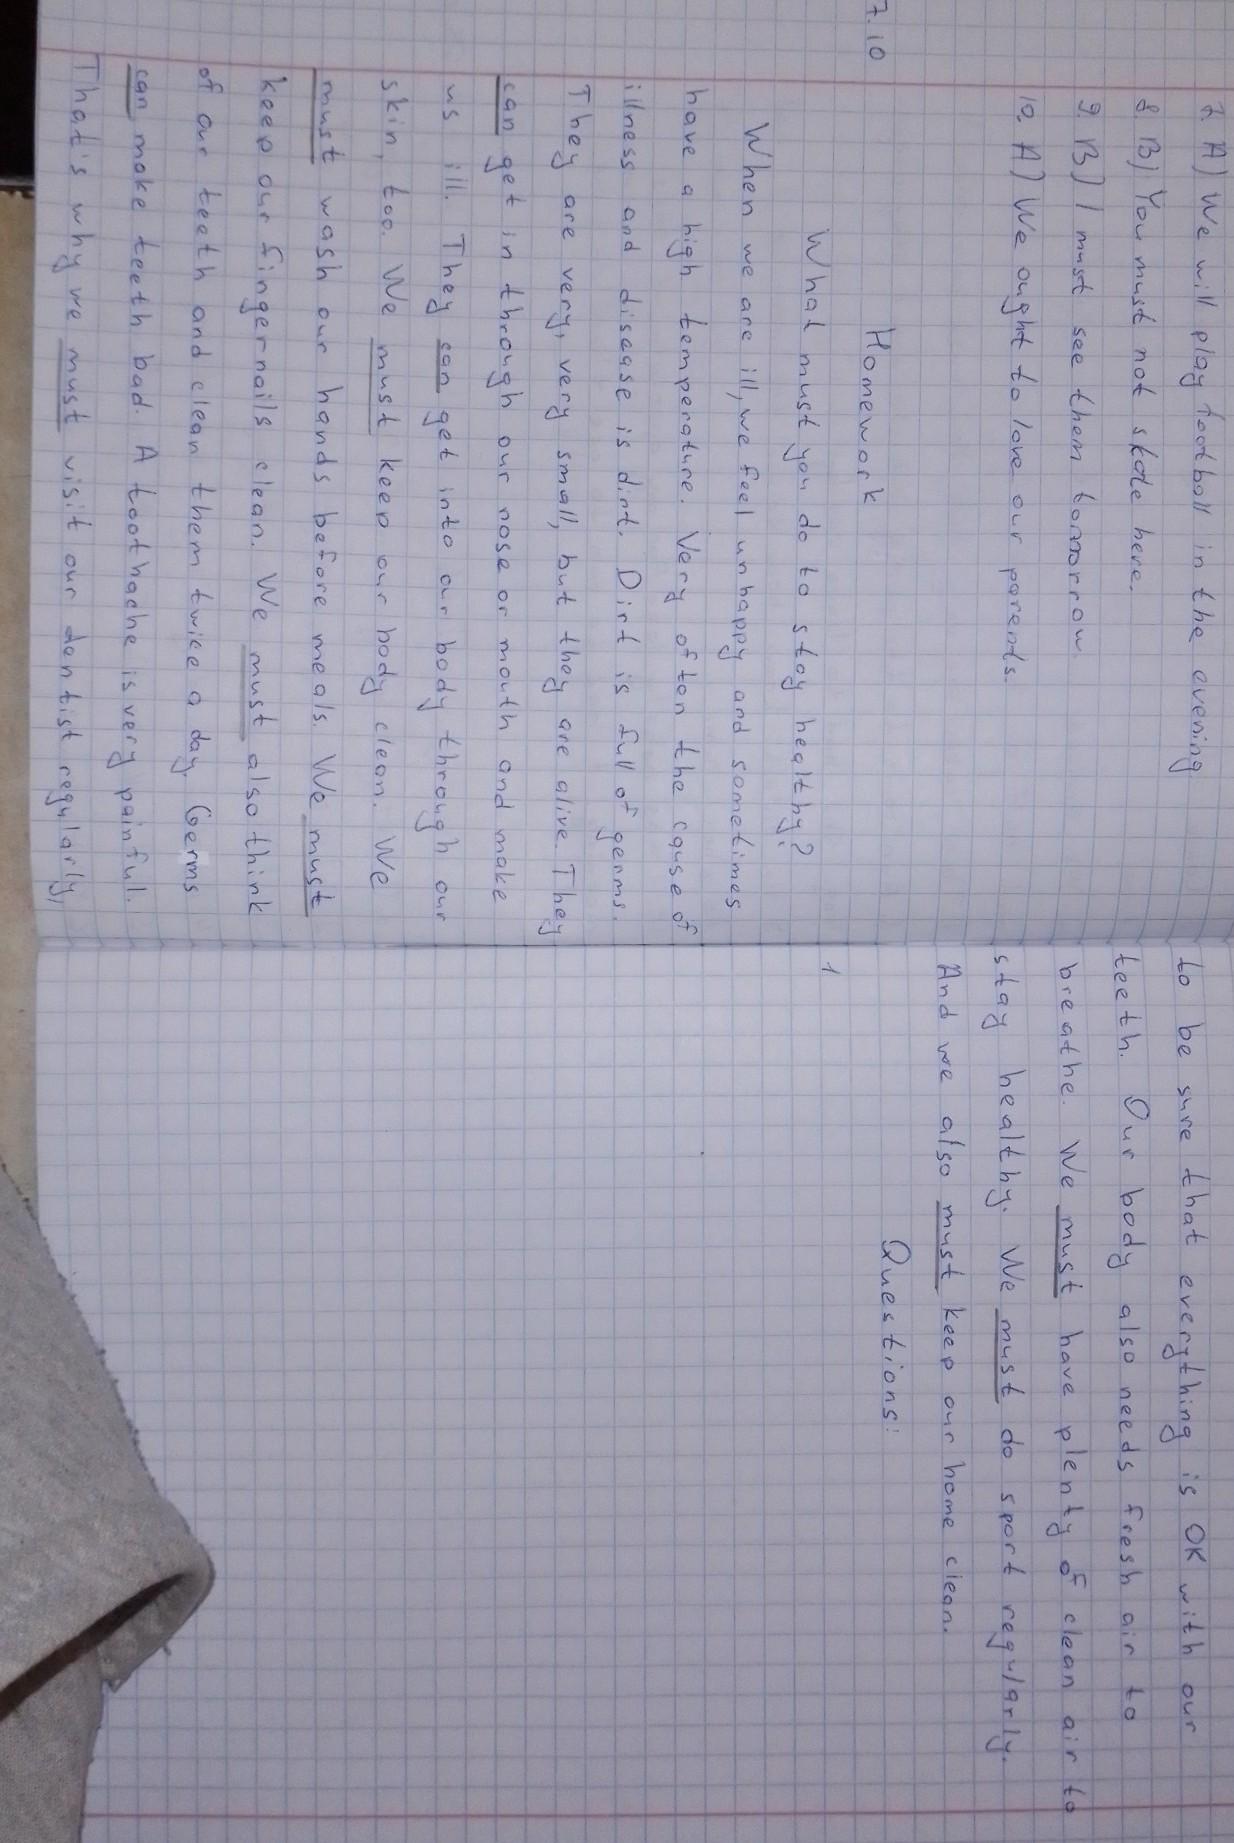 7. A) We will play football in the evening
8. B) You must not skate here.
9. B) I must see them tomorrow.
10. A) We ought to love our parents.
7.10
Homework
What must you do to stay healthy?
When we are ill, we feel unhappy and sometimes
have a high temperature. Very ofton the cause of
illness and disease is dirt. Dirt is full of germs.
They are very, very small, but they are alive. They
can get in through our nose or mouth and make
us ill. They can get into our body through our
skin, too. We must keep our body clean. We
must wash our hands before meals. We must
keep our fingernails clean. We must also think
of our teeth and clean them twice a day. Germs
can make teeth bad. A toothache is very painful.
That's why we must visit our dentist regularly,
to be sure that everything is OK with our
teeth. Our body also needs fresh air to
breathe. We must have plenty of clean air to
stay healthy. We must do sport regularly.
And we also must keep our home clean.
Questions:
1